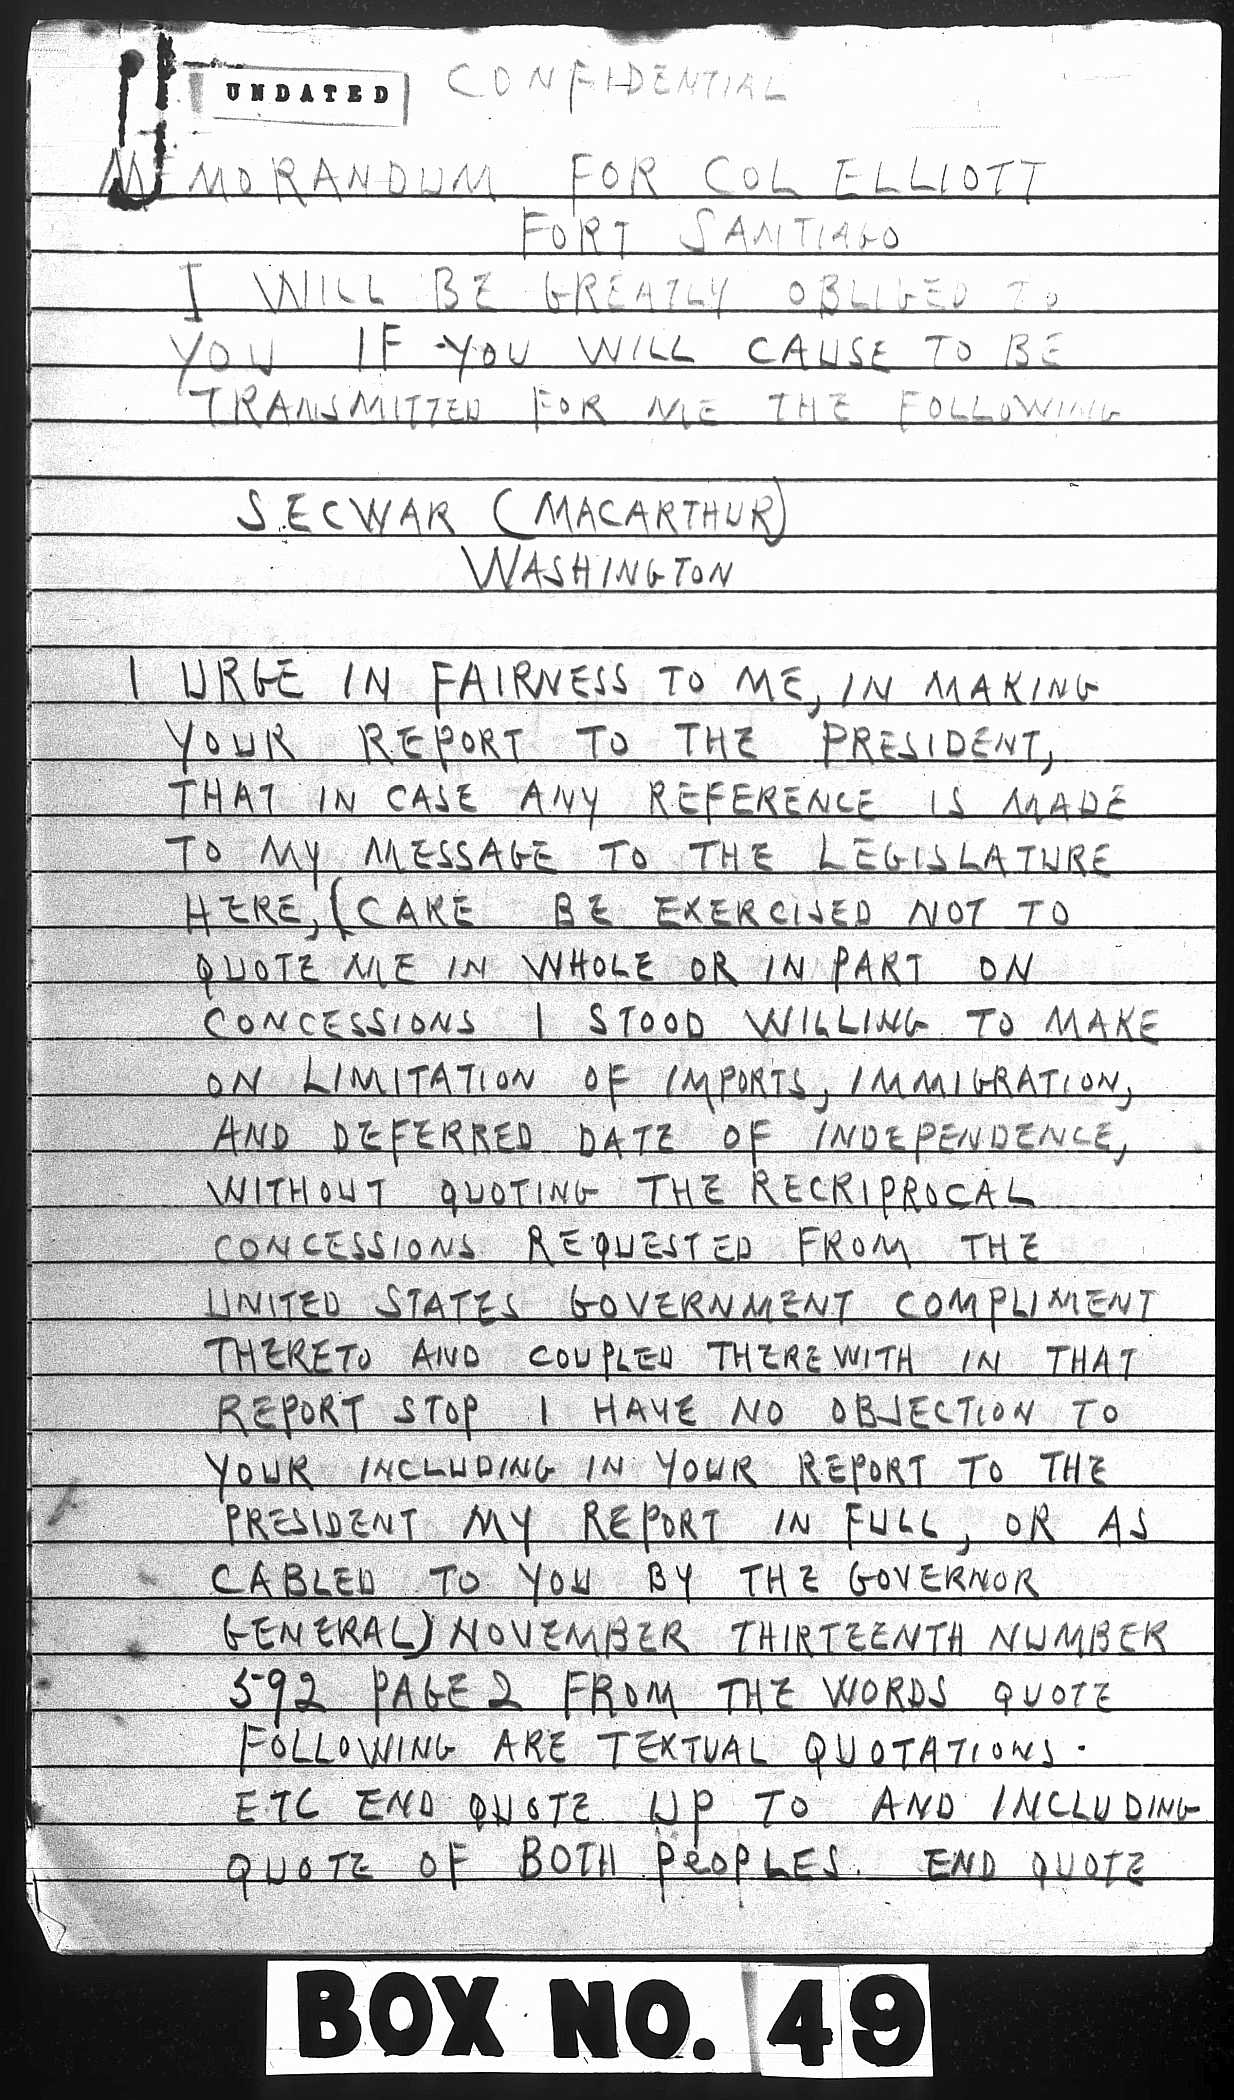 UNDATED
CONFIDENTIAL
MEMORANDUM FOR COL ELLIOTT
FORT SANTIAGO
I WILL BE GREATLY OBLIGED TO
YOU IF YOU WILL CAUSE TO BE
TRANSMITTED FOR ME THE FOLLOWING
SECWAR (MACARTHUR)
WASHINGTON
I URGE IN FAIRNESS TO ME, IN MAKING
YOUR REPORT TO THE PRESIDENT,
THAT IN CASE ANY REFERENCE IS MADE
TO MY MESSAGE TO THE LEGISLATURE
HERE, (CARE BE EXERCISED NOT TO
QUOTE ME IN WHOLE OR IN PART ON
CONCESSIONS I STOOD WILLING TO MAKE
ON LIMITATION OF IMPORTS, IMMIGRATION,
AND DEFERRED DATE OF INDEPENDENCE,
WITHOUT QUOTING THE RECRIPROCAL
CONCESSIONS REQUESTED FROM THE
UNITED STATES GOVERNMENT COMPLIMENT
THERETO AND COUPLED THEREWITH IN THAT
REPORT STOP I HAVE NO OBJECTION TO
YOUR INCLUDING IN YOUR REPORT TO THE
PRESIDENT MY REPORT IN FULL, OR AS
CABLED TO YOU BY THE GOVERNOR
GENERAL) NOVEMBER THIRTEENTH NUMBER
592 PAGE 2 FROM THE WORDS QUOTE
FOLLOWING ARE TEXTUAL QUOTATIONS.
ETC END QUOTE UP TO AND INCLUDING
QUOTE OF BOTH PEOPLES. END QUOTE
BOX NO. 49